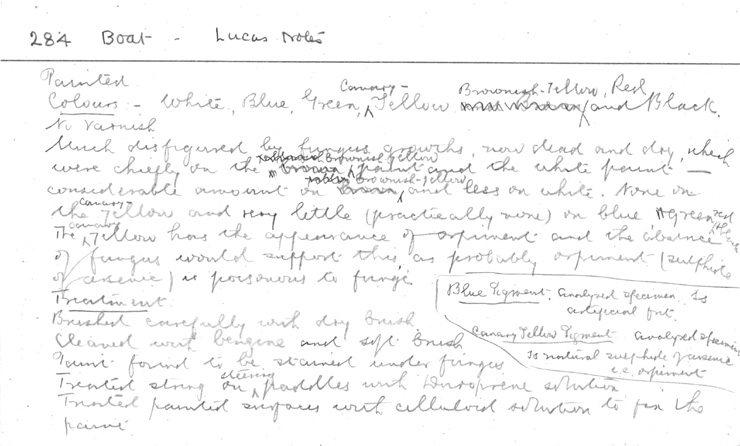 284 Boat - Lucas Notes
Painted
Colours - White, Blue, Green, Canary-Yellow Brownish-Yellow, Red and Black.
No Varnish
Much disfigured by fungus growths, now dead and dry, which
were chiefly on the Brownish Yellow paint and the white paint —
considerable amount on Brownish-Yellow and less on white. None on
the Canary-Yellow and very little (practically none) on blue green red
The canary Yellow has the appearance of orpiment and the absence
of fungus would support this, as probably orpiment (sulphide
of arsenic) is poisonous to fungi
Treatment
Brushed carefully with dry brush
Cleaned with benzine and soft brush
Paint found to be stained under fungus
Treated string on steering paddles with Duroprene solution
Treated painted surfaces with celluloid solution to fix the
paint
Blue Pigment. analysed specimen. Is
artificial frit.
Canary Yellow Pigment analysed specimen
Is natural sulphide of arsenic
i.e. orpiment